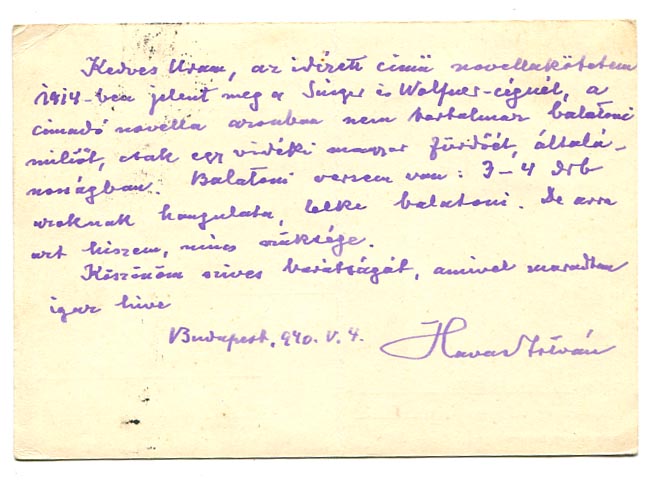 Kedves Uram, az idézett című novellakötetem
1914-ben jelent meg a Singer és Wolfner-cégnél, a
címadó novella azonban nem tartalmaz balatoni
miliőt, csak egy vidéki magyar fürdőét, általá-
nosságban. Balatoni versem van: 3-4 drb
azoknak hangulata, lelke balatoni. De arra
azt hiszem, nincs szüksége.
Köszönöm szives barátságát, amivel maradtam
igaz hive
Budapest, 940. V. 4.
Havas István